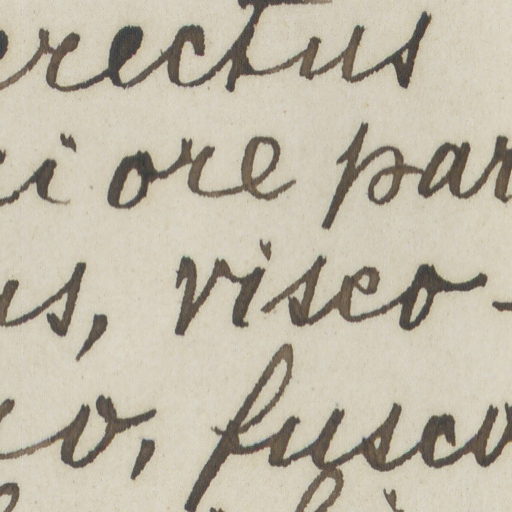 erectus
iore par
us, visco-
o, fusco